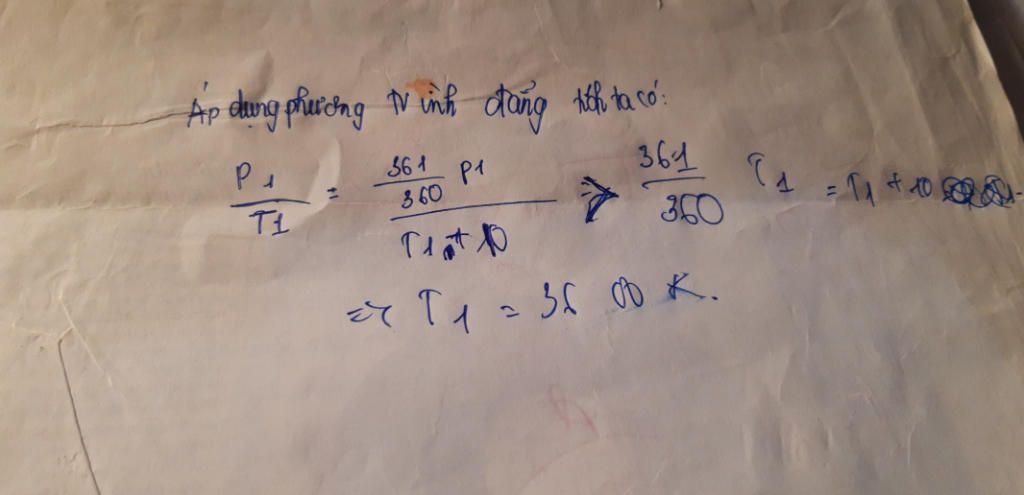 Áp dụng phương trình đẳng tích ta có:
P1/T1 = (361/360 P1)/(T1 + 10) => 361/360 T1 = T1 + 10
=> T1 = 3600 K.